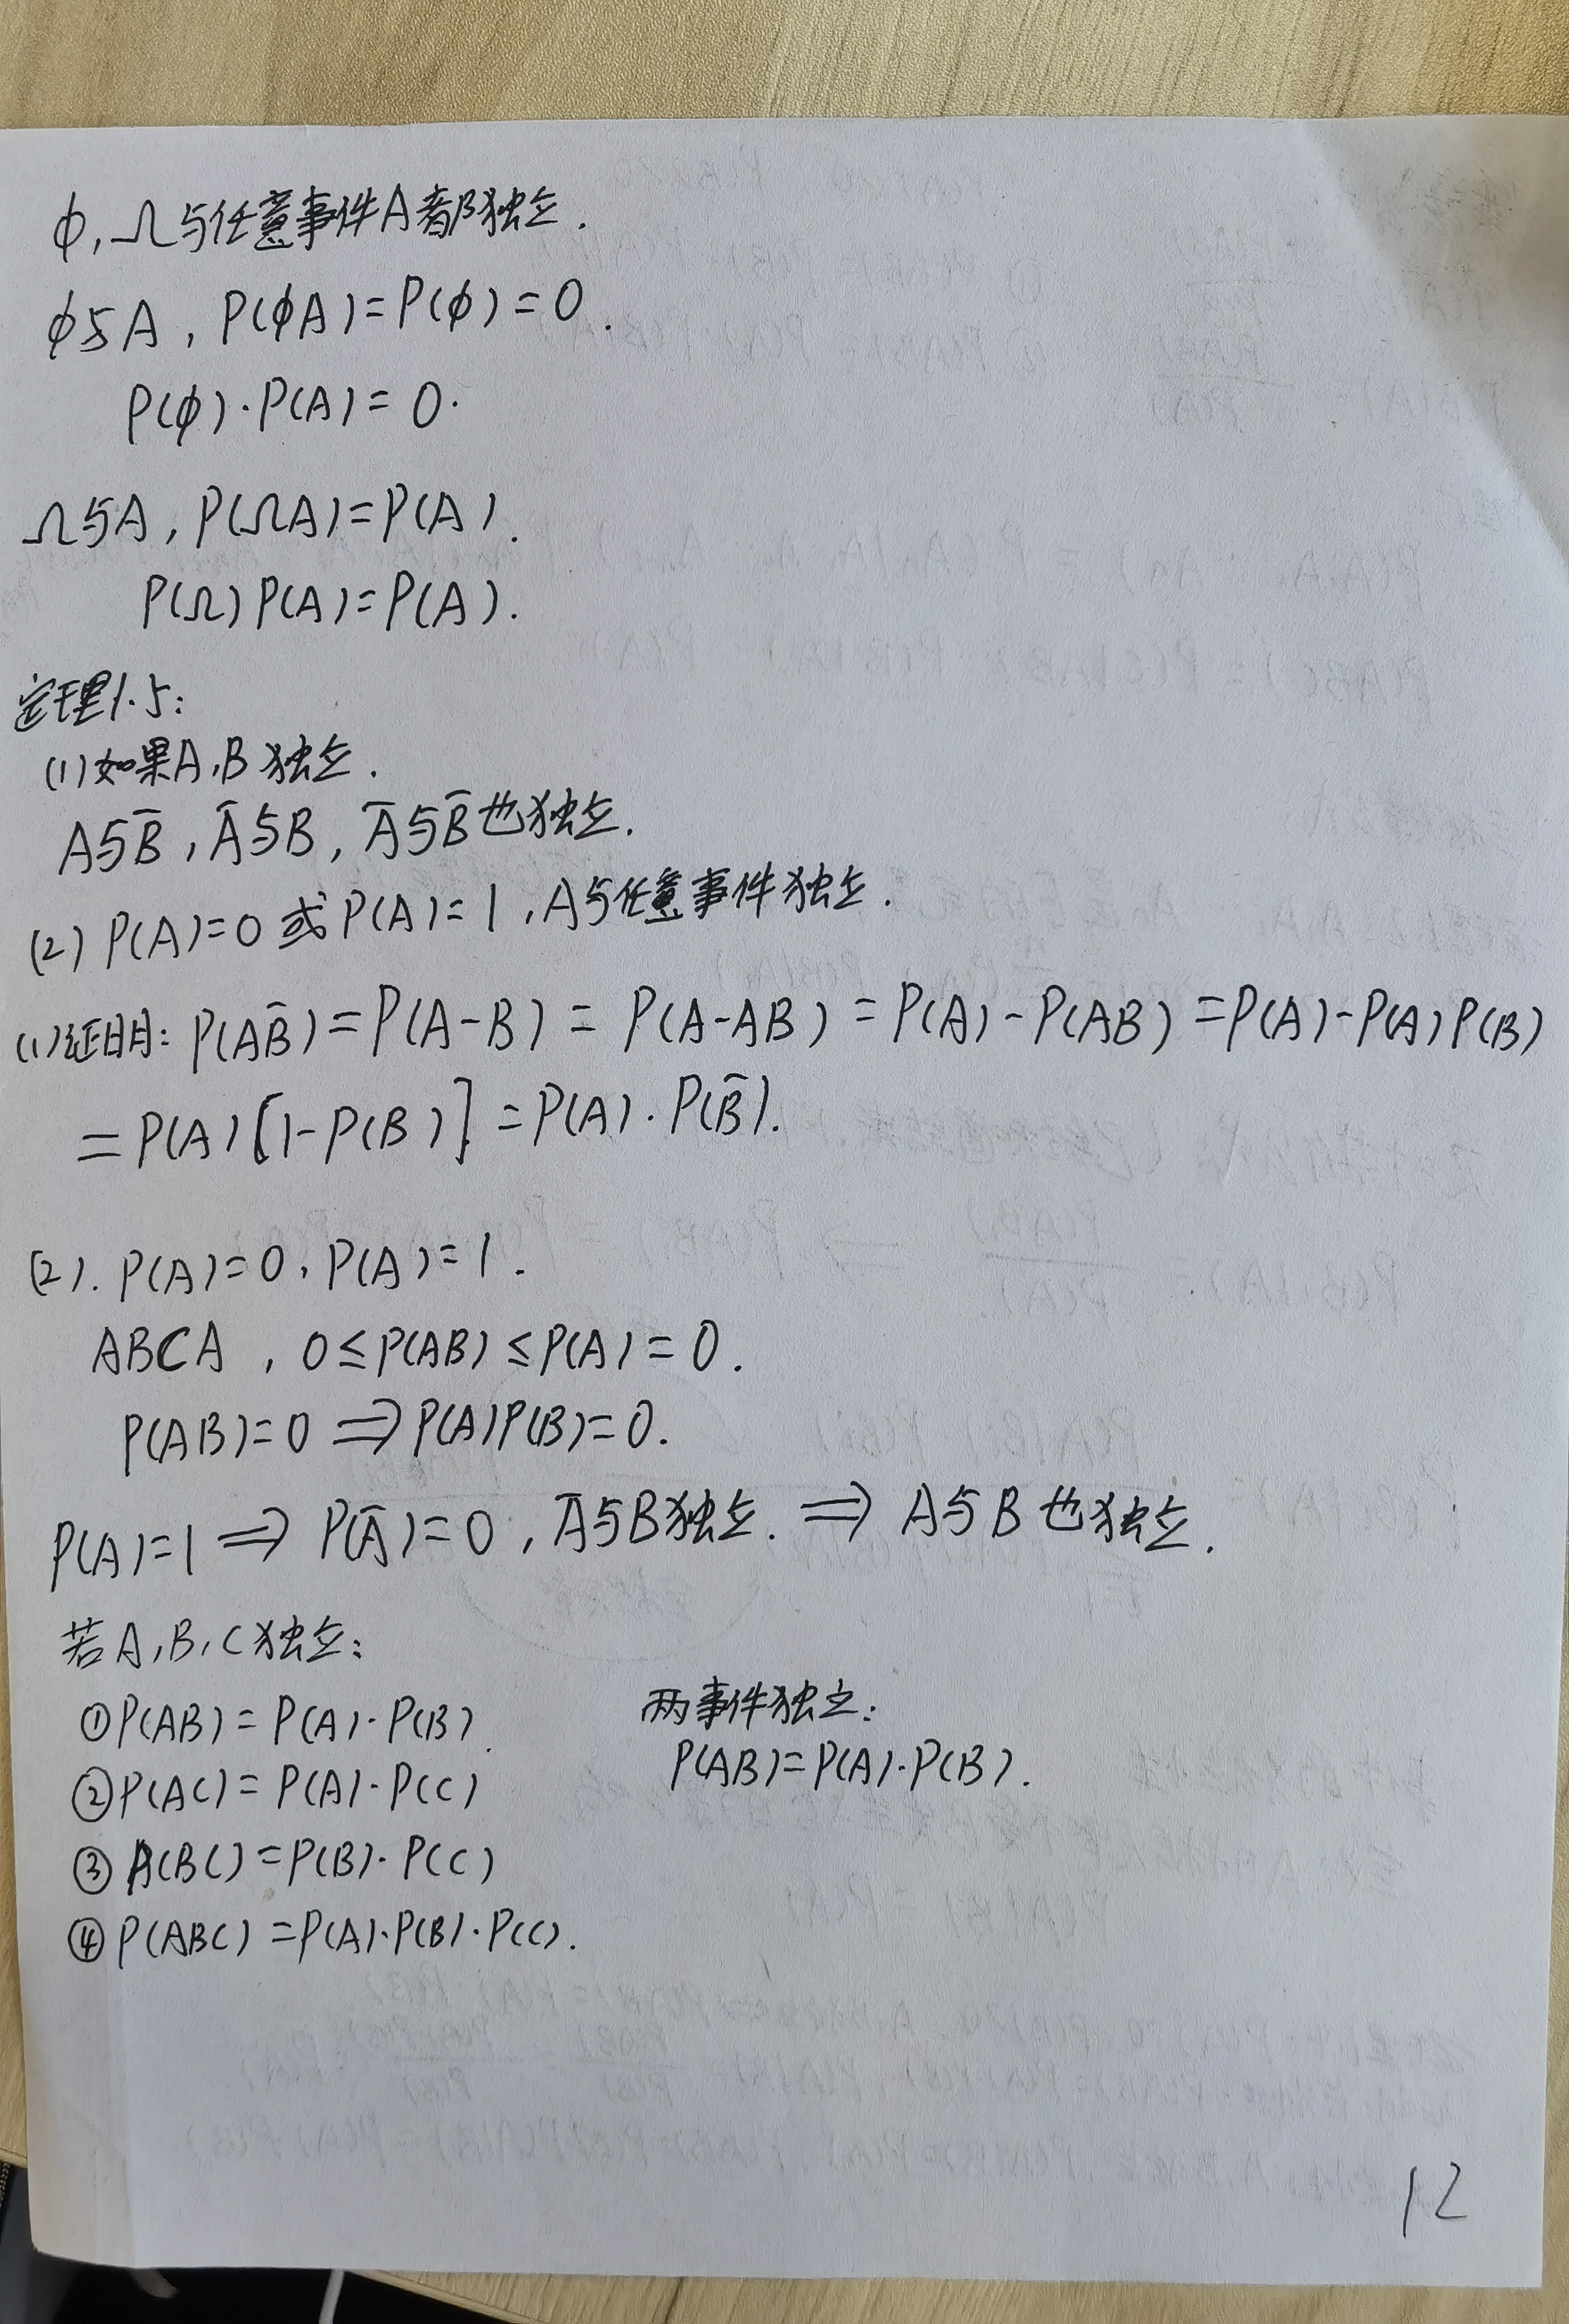 φ,Ω与任意事件A都独立.
φ与A,P(φA)=P(φ)=0.
P(φ)·P(A)=0.
Ω与A,P(ΩA)=P(A).
P(Ω)P(A)=P(A).
定理1.5:
(1)如果A,B独立.
A与B̄,Ā与B,Ā与B̄也独立.
(2)P(A)=0或P(A)=1,A与任意事件独立.
(1)证明:P(AB̄)=P(A-B)=P(A-AB)=P(A)-P(AB)=P(A)-P(A)P(B)
=P(A)[1-P(B)]=P(A)·P(B̄).
(2).P(A)=0,P(A)=1.
AB⊂A,0≤P(AB)≤P(A)=0.
P(AB)=0⇒P(A)P(B)=0.
P(A)=1⇒P(Ā)=0,Ā与B独立.⇒A与B也独立.
若A,B,C独立:
①P(AB)=P(A)·P(B).
②P(AC)=P(A)·P(C)
③P(BC)=P(B)·P(C)
④P(ABC)=P(A)·P(B)·P(C).
两事件独立:
P(AB)=P(A)·P(B).
12